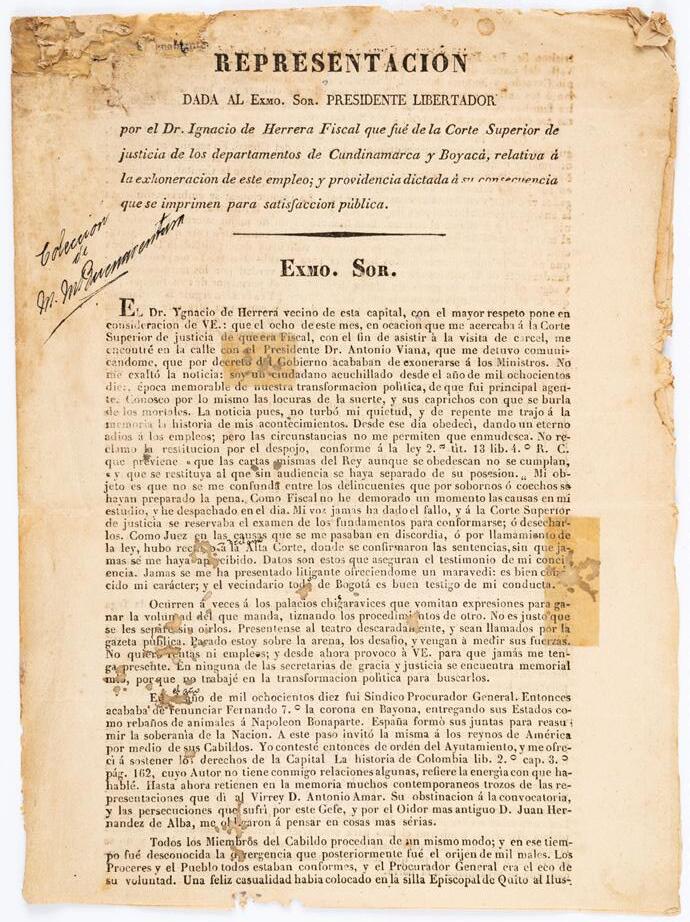 REPRESENTACIÓN
DADA AL EXMO. SOR. PRESIDENTE LIBERTADOR
por el Dr. Ignacio de Herrera Fiscal que fué de la Corte Superior de
justicia de los departamentos de Cundinamarca y Boyacá, relativa á
la exhoneracion de este empleo; y providencia dictada á su consecuencia
que se imprimen para satisfaccion pública.
Coleccion
de
M. Ma Buenaventura
EXMO. SOR.
EL Dr. Ygnacio de Herrera vecino de esta capital, con el mayor respeto pone en
consideracion de VE.: que el ocho de este mes, en ocacion que me acercaba á la Corte
Superior de justicia de que era Fiscal, con el fin de asistir à la visita de carcel, me
encontré en la calle con el Presidente Dr. Antonio Viana, que me detuvo comuni-
candome, que por decreto del Gobierno acababan de exonerarse á los Ministros. No
me exaltó la noticia: soy un ciudadano acuchillado desde el año de mil ochocientos
diez, época memorable de nuestra transformacion politica, de que fui principal agen-
te. Conosco por lo mismo las locuras de la suerte, y sus caprichos con que se burla
de los mortales. La noticia pues, no turbó mi quietud, y de repente me trajo á la
memoria la historia de mis acontecimientos. Desde ese dia obedecì, dando un eterno
adios á los empleos; pero las circunstancias no me permiten que enmudesca. No re-
clamo la restitucion por despojo, conforme á la ley 2.ª tìt. 13 lib. 4.º R. C.
que previene « que las cartas mismas del Rey aunque se obedescan no se cumplan,
« y que se restituya al que sin audiencia se haya separado de su posesion. „ Mi ob-
jeto es que no se me confunda entre los delincuentes que por sobornos ó coechos se
hayan preparado la pena. Como Fiscal no he demorado un momento las causas en mi
estudio, y he despachado en el dia. Mi voz jamas ha dado el fallo, y á la Corte Superior
de justicia se reservaba el examen de los fundamentos para conformarse; ó desechar-
los. Como Juez en las causas que se me pasaban en discordia, ó por llamamiento de
la ley, hubo recurso á la Alta Corte, donde se confirmaron las sentencias, sin que ja-
mas se me haya apercibido. Datos son estos que aseguran el testimonio de mi conci
encia. Jamas se me ha presentado litigante ofreciendome un maravedi: es bien cono
cido mi carácter; y el vecindario todo de Bogotá es buen testigo de mi conducta.
Ocurren á veces á los palacios chigaravices que vomitan expresiones para ga-
nar la voluntad del que manda, tiznando los procedimientos de otro. No es justo que
se les separe sin oirlos. Presentense al teatro descaradamente, y sean llamados por la
gazeta pública. Parado estoy sobre la arena, los desafio, y vengan à medir sus fuerzas.
No quiero rentas ni empleos; y desde ahora provoco á VE. para que jamás me ten-
ga presente. En ninguna de las secretarias de gracia y justicia se encuentra memorial
mio, porque no trabajé en la transformacion política para buscarlos.
En el año de mil ochocientos diez fui Sindico Procurador General. Entonces
acababa de renunciar Fernando 7.º la corona en Bayona, entregando sus Estados co-
mo rebaños de animales á Napoleon Bonaparte. España formò sus juntas para reasu
mir la soberania de la Nacion. A este paso invitó la misma á los reynos de América
por medio de sus Cabildos. Yo contesté entonces de orden del Ayuntamiento, y me ofre-
cí á sostener los derechos de la Capital La historia de Colombia lib. 2.º cap. 3.º
pág. 162, cuyo Autor no tiene conmigo relaciones algunas, refiere la energia con que ha-
hablé. Hasta ahora retienen en la memoria muchos contemporaneos trozos de las re-
presentaciones que dì al Virrey D. Antonio Amar. Su obstinacion á la convocatoria,
y las persecuciones que sufrí por este Gefe, y por el Oidor mas antiguo D. Juan Her-
nandez de Alba, me obligaron á pensar en cosas mas sérias.
Todos los Miembros del Cabildo procedian de un mismo modo; y en ese tiem-
po fué desconocida la divergencia que posteriormente fué el orijen de mil males. Los
Proceres y el Pueblo todos estaban conformes, y el Procurador General era el eco de
su voluntad. Una feliz casualidad habia colocado en la silla Episcopal de Quito al Ilus-